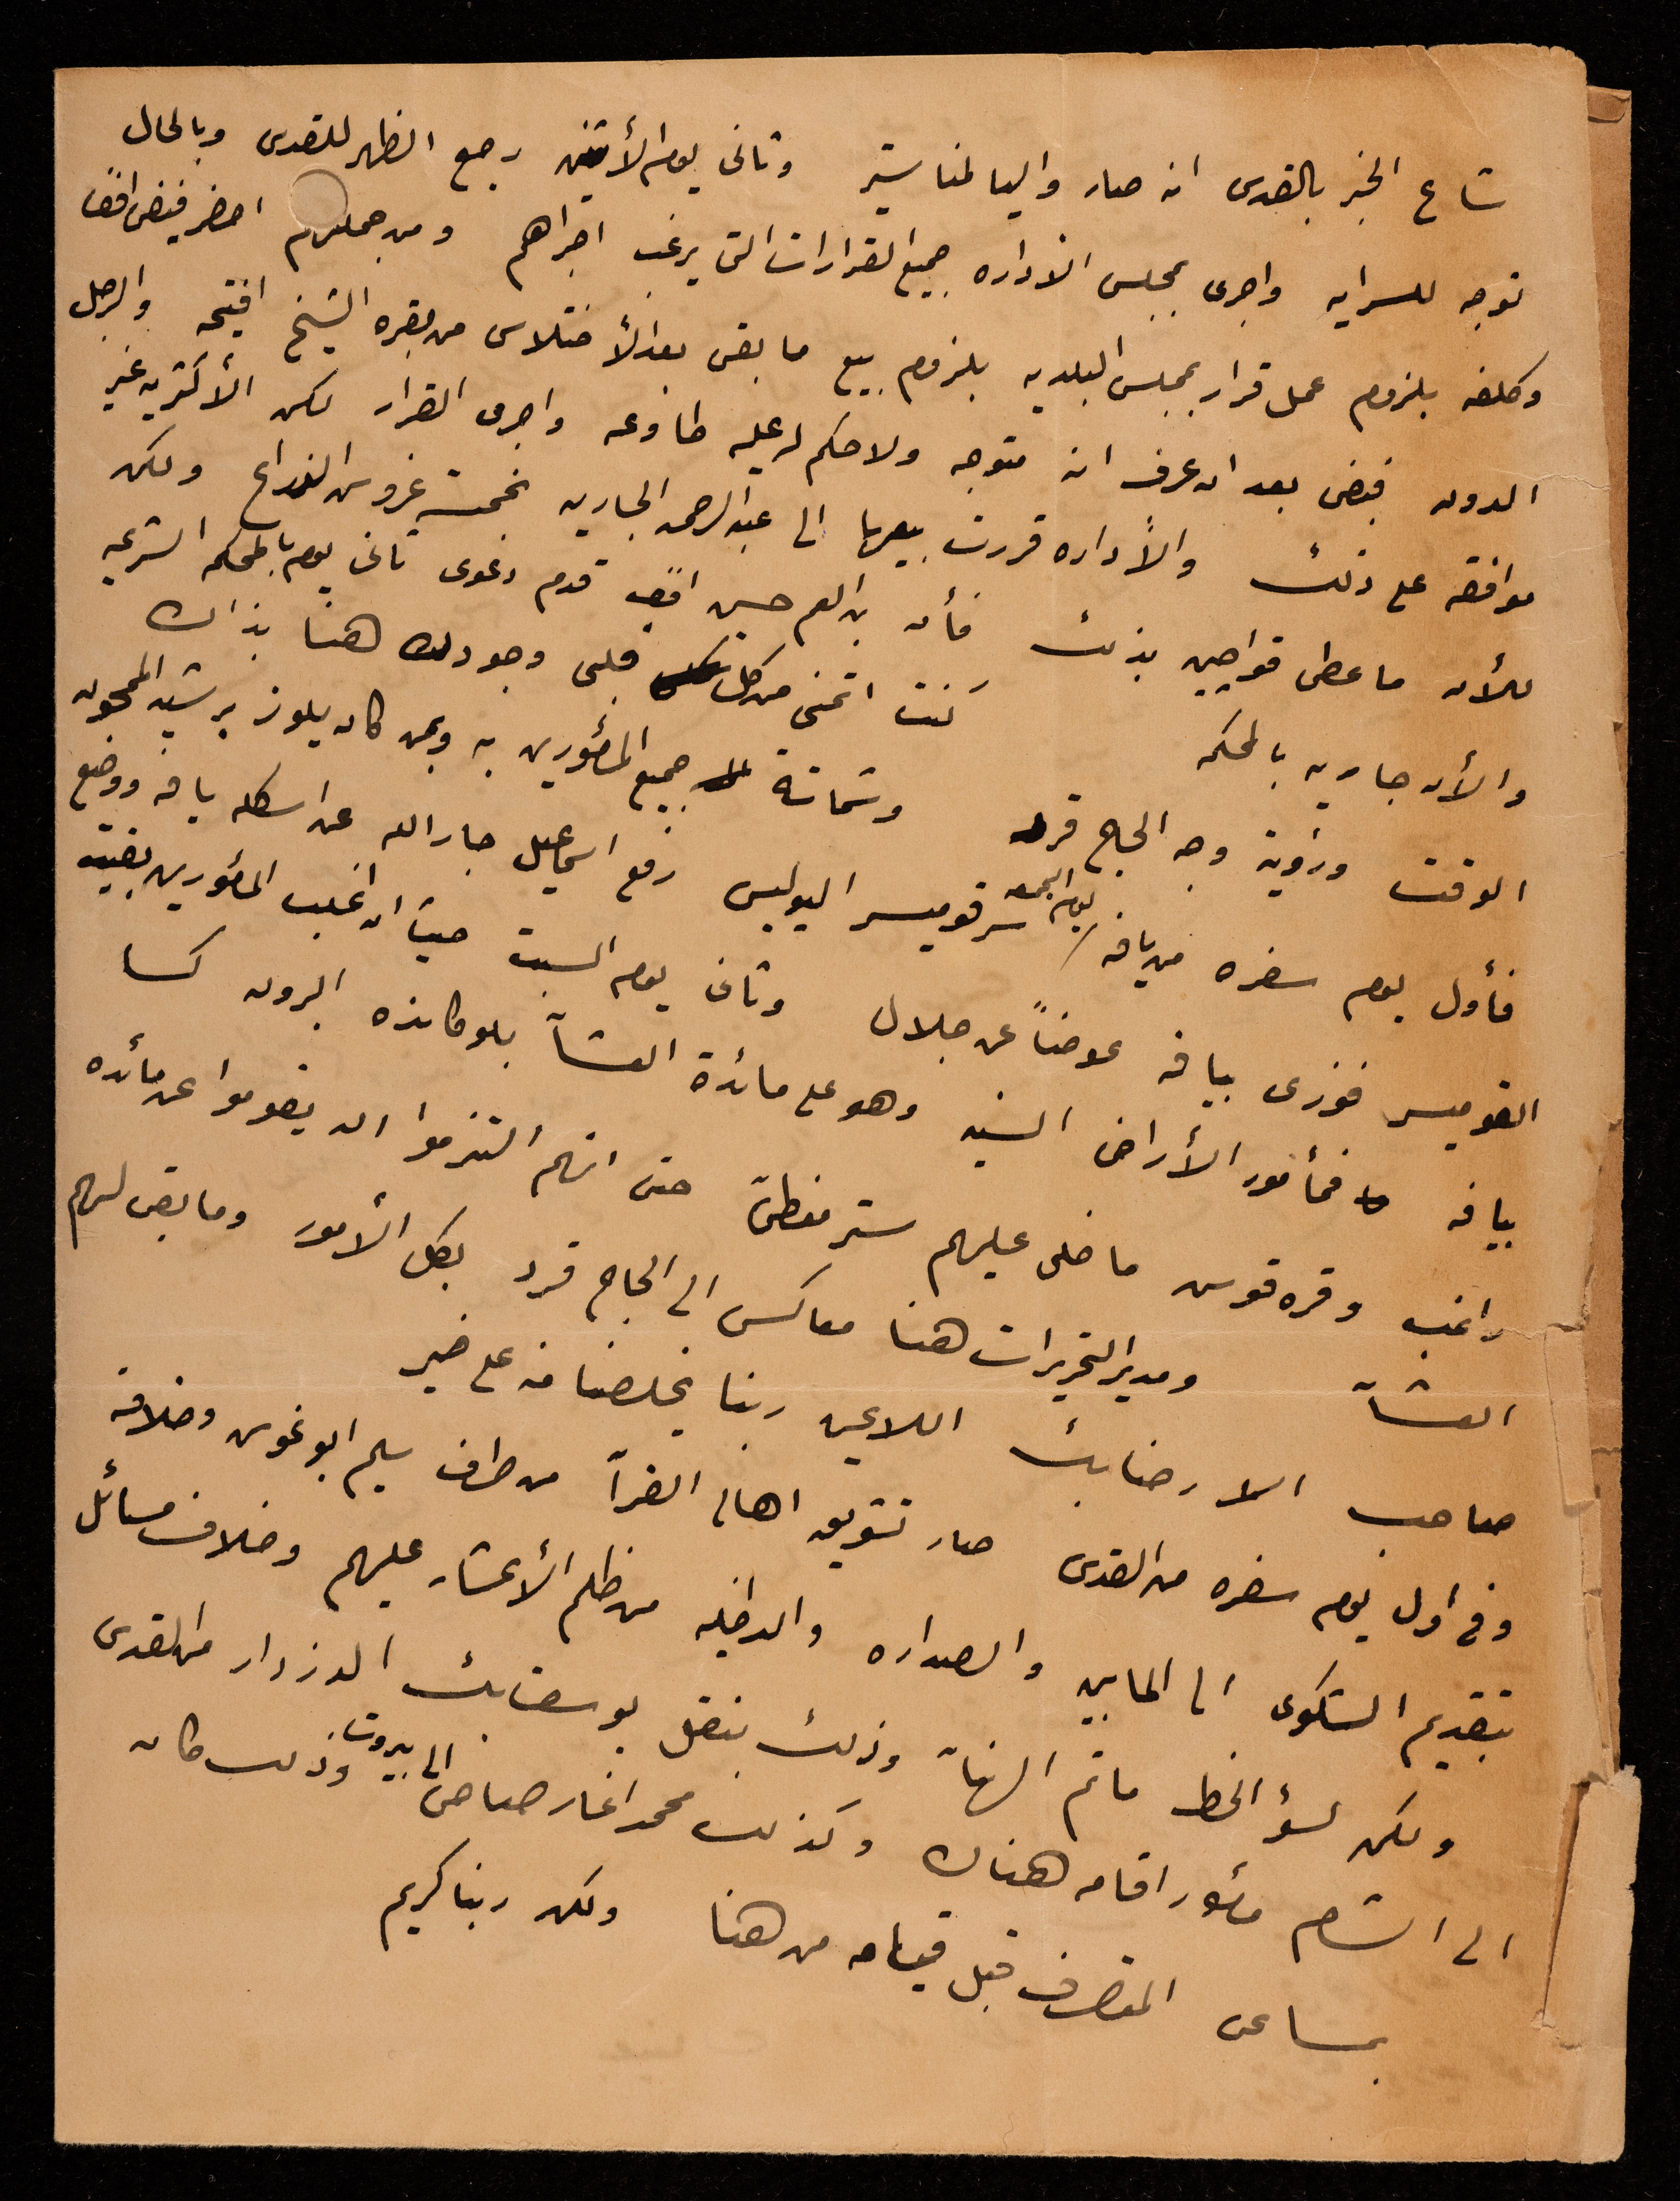 شاع الخبر بالقدس انه صار واليا لمناستير وثانى يوم الأثنين رجع الظهر للقدس وبالحال
توجه للسرايه واجرى بمجلس الاداره جميع القرارات التى يرغب اجراهم ومن جملتهم احضر فيضى افندى
وكلفه بلزوم عمل قرار بمجلس البلديه بلزوم بيع ما بقى بعد الأختلاس من بقره الشيخ افيتحه والرجل
الدون فيضى بعد ان عرف انه متوجه ولا حكم له عليه طاوعه واجرى القرار لكن الأكثريه غير
موافقه على ذلك والأداره قررت بيعها الى عبد الرحمن الجاريه بخمسة غروش الذراع ولكن
للأن ما عطى قواجين بذلك فأن بن العم حسين افندى قدم دعوى ثانى يوم بالمحكمه الشرعيه
والأن جاريه بالمحكمه كنت اتمنى من كل قلبى وجودك هنا بذاك
الوقت ورؤية وجه الحاج قرد وشماتة جميع المأمورين به وبمن كان يلوز برشيد الممحون
فأول يوم سفره من يافه يوم الجمعه سرقوميسر البوليس رفع اسماعيل جار الله عن اسكله يافه ووضع
القوميسر فوزى بيافه عوضاً عن جلال وثانى يوم السبت حيث ان اغلب المأمورين بقيت
بيافه فمأمور الأراضى السنيه وهو على مائدة العشآ بلوكانده البرون كسا
راغب وقره قوس ما خلى عليهم ستر مغطىّ حتى انهم التزموا ان يقوموا عن مائده
العشآ ومدير التحريرات هنا معاكس الى الحاج قرد بكل الأمور وما بقى لهم
صاحب الا رضا بك اللاعين ربنا يخلصنا منه على خير
وفى اول يوم سفره من القدس صار تشويق اهالى القرآ من طرف سليم ابو غوش وخلافه
بتقديم الشكوى الى المابين والصداره والداخليه من ظلم الأعشار عليهم وخلاف مسائل
ولكن لسؤ الحظ ما تم النهآ وذلك بنقل يوسف بك الدزدار من القدس
الى الشام مأمور اقامه هناك وكذلك محمد اغا رصاصى الى بيروت وذلك كان
بمساعى المتصرف قبل قيامه من هنا ولكن ربنا كريم